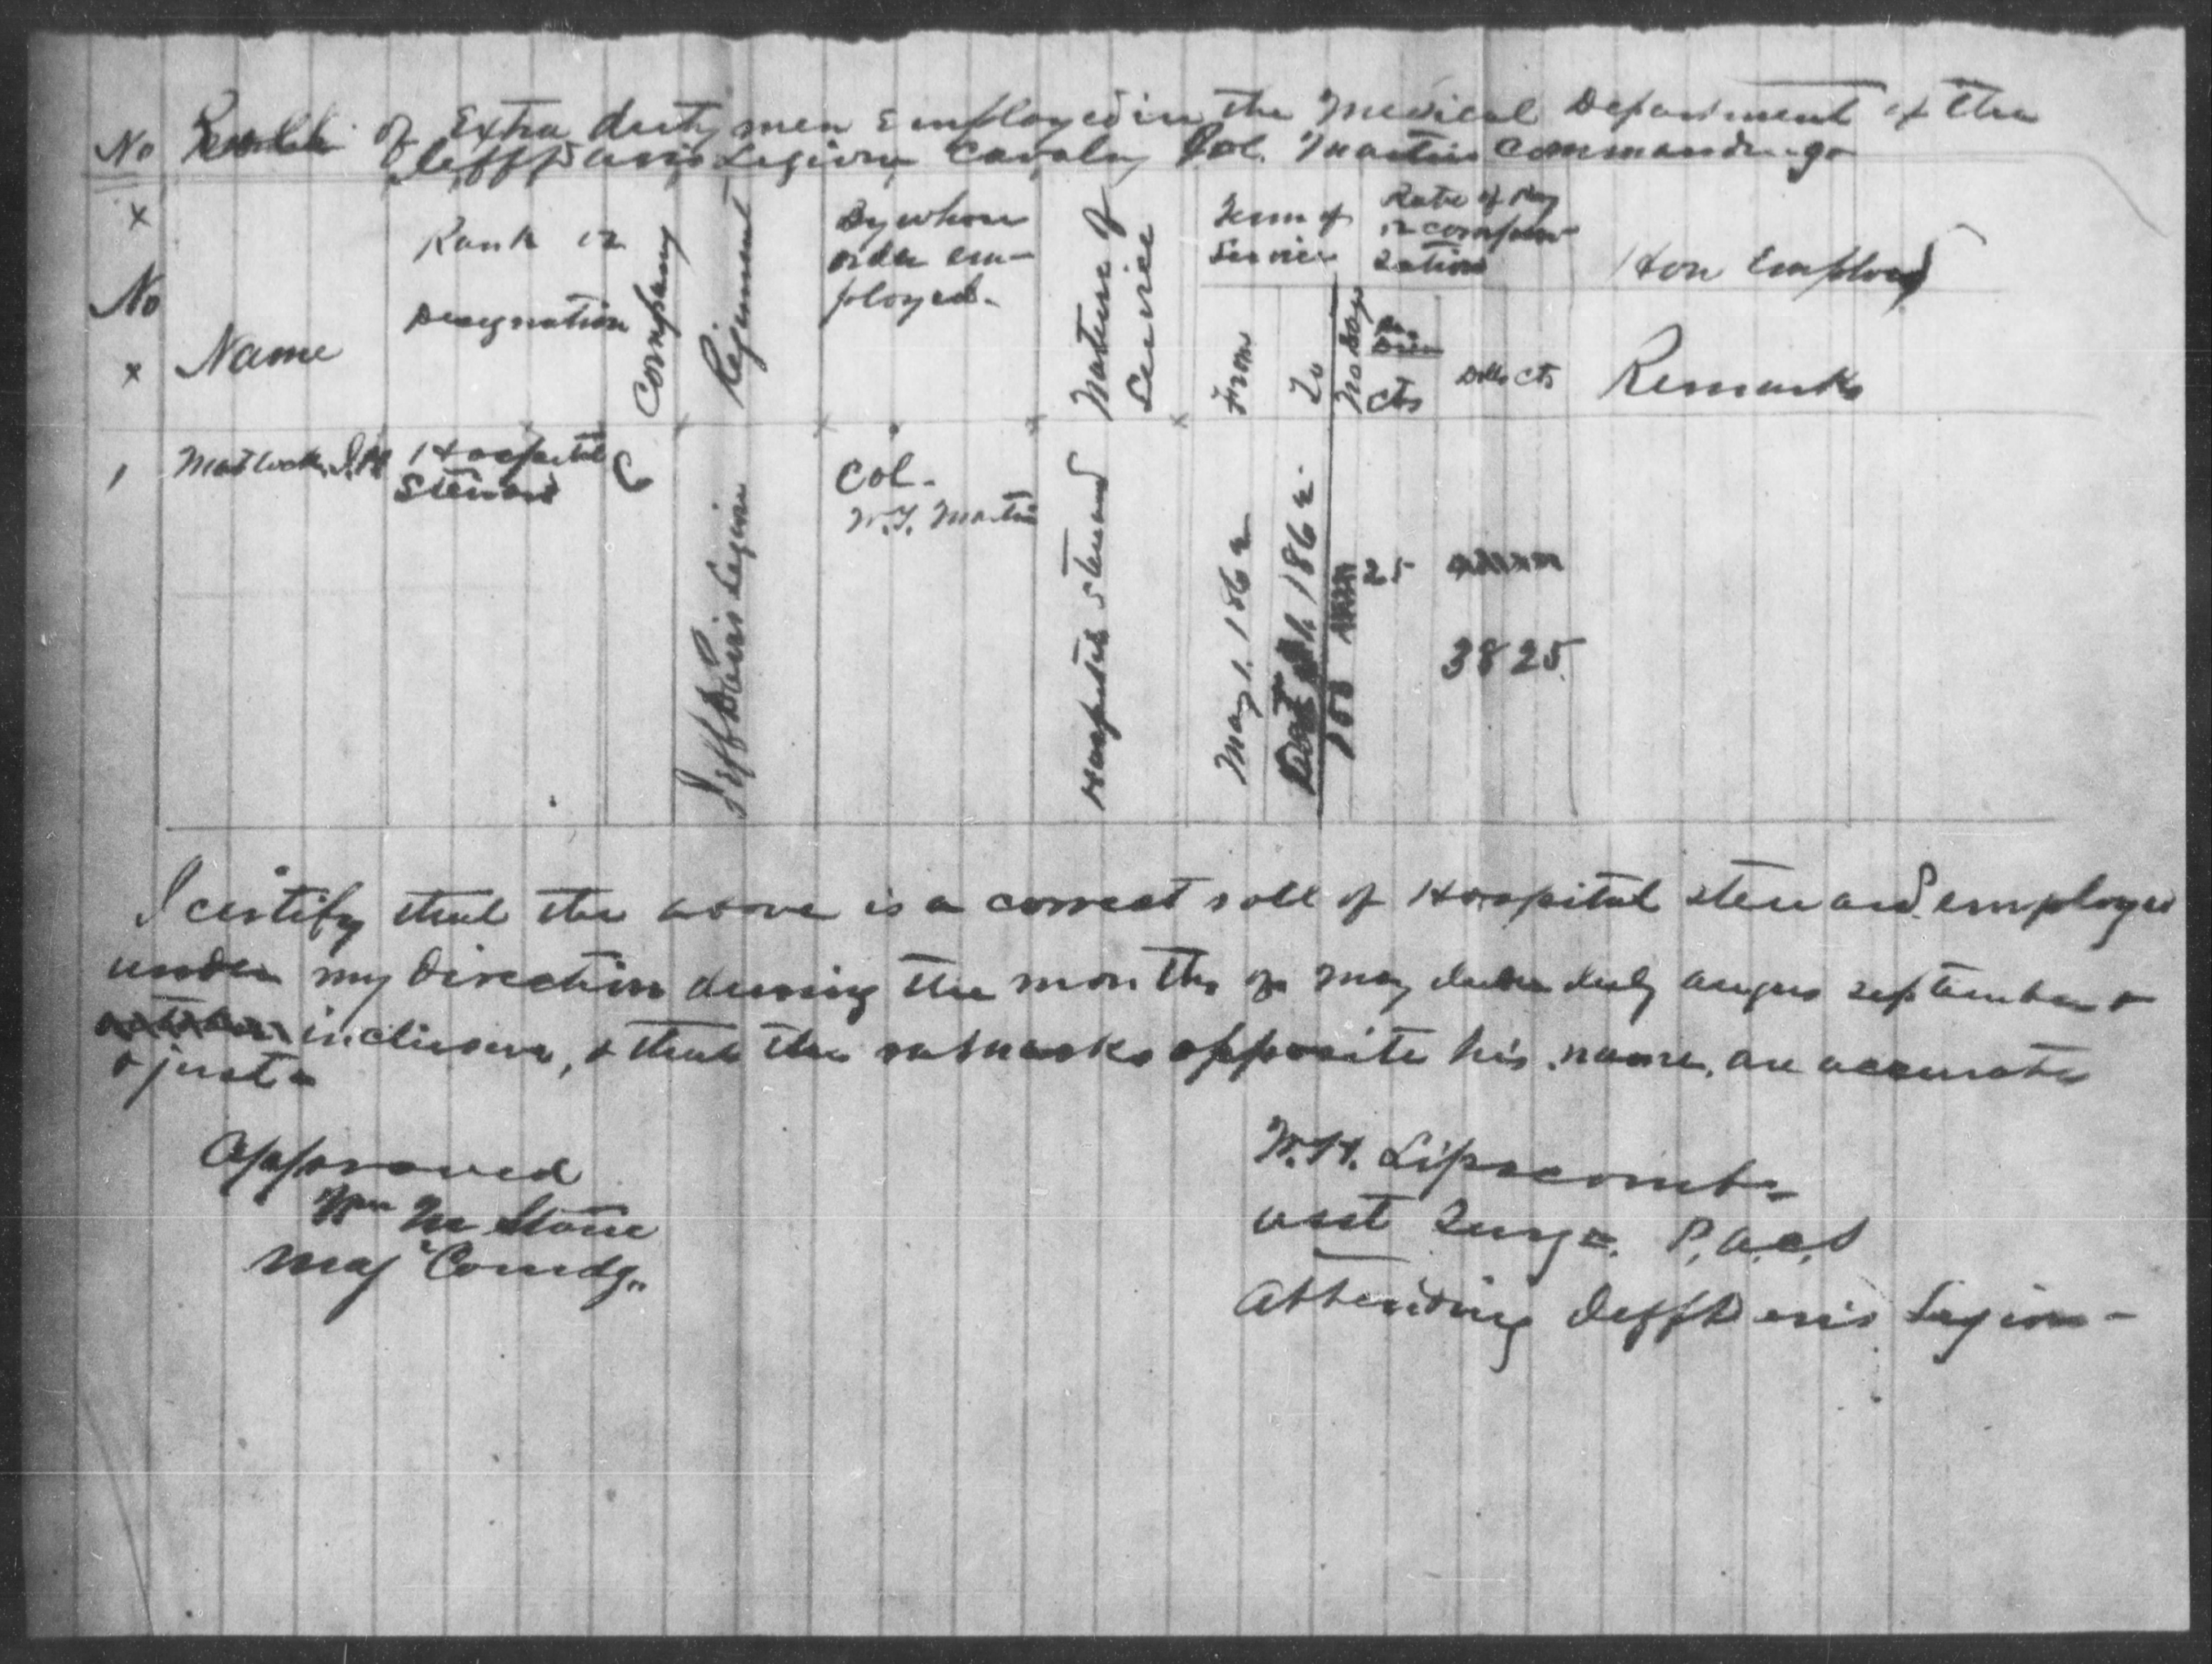 of Extra duty men Employed in the Medical Department of the
No
Jeff Davis Legion Cavalry Col. Martin Commanding
x
No
x
Name
Rank or
Designation
Company
Regiment
By whose
order em-
ployed-
Nature of
Service
Term of
Service
From
To
No Days
Rate of Pay
or compen-
sation
Per
Diem
Cts
Dolls Cts
How Employed
Remarks
1
Matlock, J.M
Hospital
Steward
C
Jeff Davis Legion
Col-
W.T. Martin
Hospital Steward
May 1. 1862
1862
153
25
3825
I certify that the above is a correct roll of Hospital steward employed
under my direction during the months of may June July augus september &
october inclusive, & that the remarks opposite his name, are accurate
& just-
Approved
Wm M Stone
Maj Comdg..
W.H. Lipscomb-
asst Surgn. P.A.C.S
Attending Jeff Davis Legion-